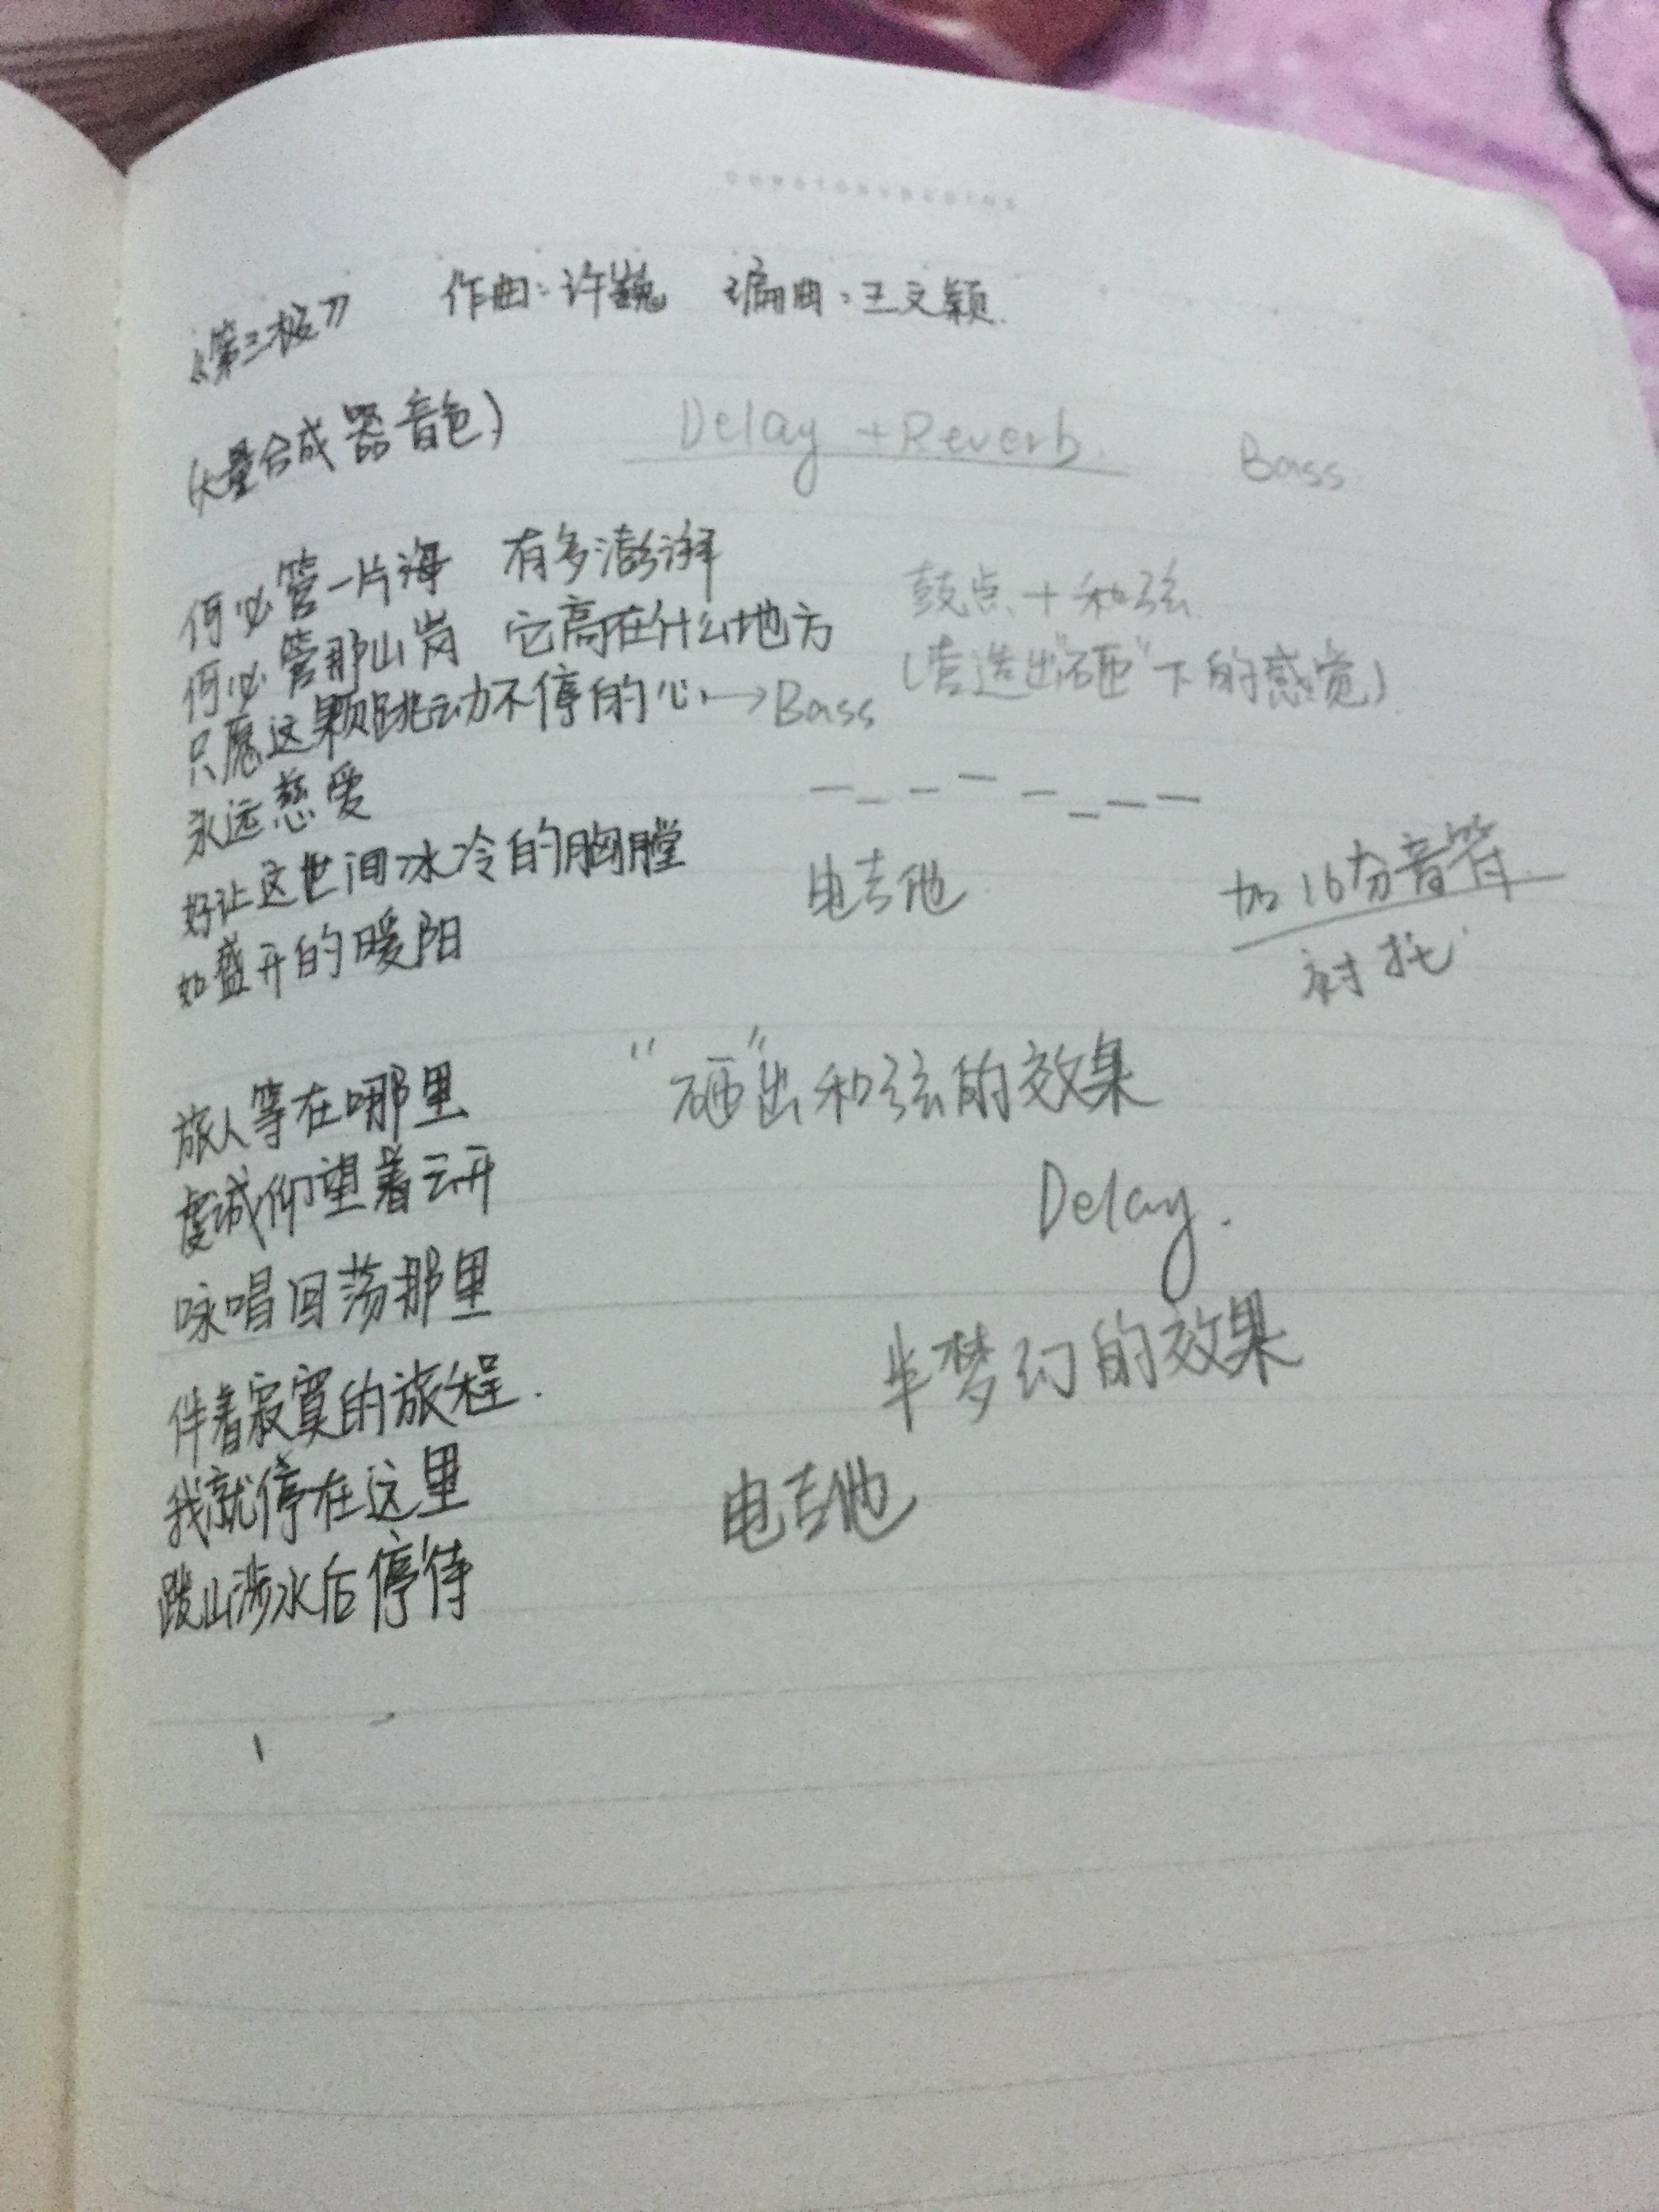 《第三极》 作曲：许巍 编曲：王文颖.
(大量合成器音色) Delay + Reverb. Bass.
何必管一片海 有多澎湃
何必管那山岗 它高在什么地方
鼓点 + 和弦
(营造出"砸"下的感觉)
只愿这颗跳动不停的心 → Bass
永远慈爱
好让这世间冰冷的胸膛 电吉他
加16分音符
衬托
如盛开的暖阳
旅人等在哪里 "砸"出和弦的效果
虔诚仰望着云开 Delay.
咏唱回荡那里
半梦幻的效果
伴着寂寞的旅程.
我就停在这里 电吉他
跋山涉水后停待